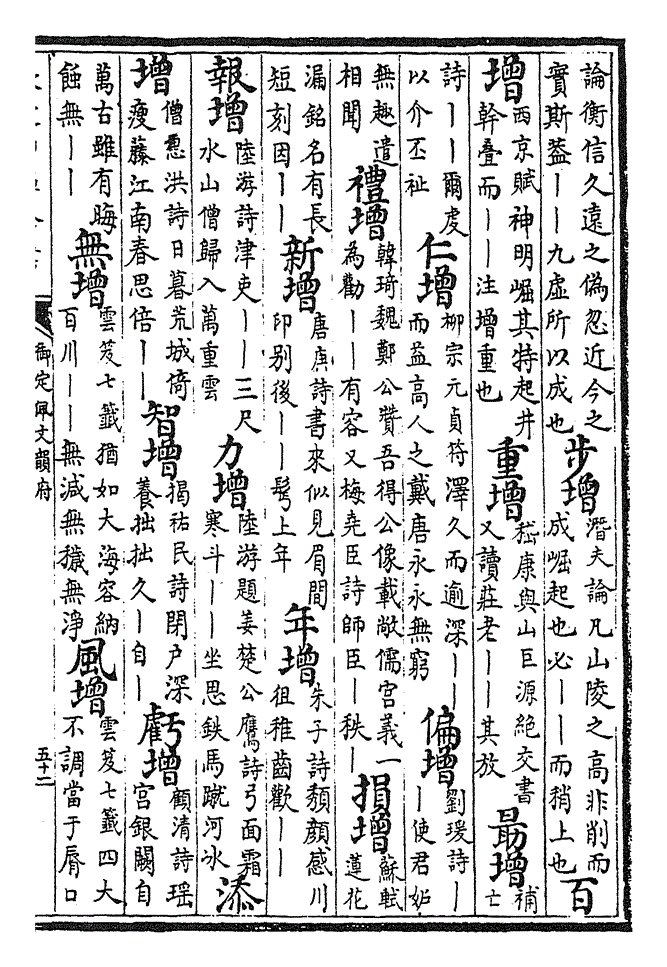 論衡信久遠之偽忽近今之
實斯益——九虛所以成也
步增
潛夫論凡山陵之高非削而
成崛起也必——而稍上也
百
增
西京賦神明崛其特起井
幹疊而——注增重也
重增
嵇康與山巨源絕交書
又讀莊老——其放
最增
補
亡
詩——爾虔
以介丕祉
仁增
柳宗元貞符澤久而逾深——
而益高人之戴唐永永無窮
偏增
劉瑗詩—
—使君妒
無趣遣
相聞
禮增
韓琦魏鄭公贊吾得公像載敞儒宮義一
為勸——有容又梅堯臣詩師臣—秩—
損增
蘇軾
蓮花
漏銘名有長
短刻因——
新增
唐庚詩書來似見眉間
印別後——髩上年
年增
朱子詩頹顏感川
徂稚齒歡——
報增
陸游詩津吏——三尺
水山僧歸入萬重雲
力增
陸游題姜楚公鷹詩弓面霜
寒斗——坐思鉄馬蹴河冰
添
增
僧惠洪詩日暮荒城倚
瘦藤江南春思倍——
智增
揭祐民詩閉户深
養拙拙久—自—
虧增
顧清詩瑶
宮銀闕自
萬古雖有晦
蝕無——
無增
雲笈七籤猶如大海容納
百川——無減無穢無淨
風增
雲笈七籤四大
不調當于脣口
御定佩文韻府
五十二